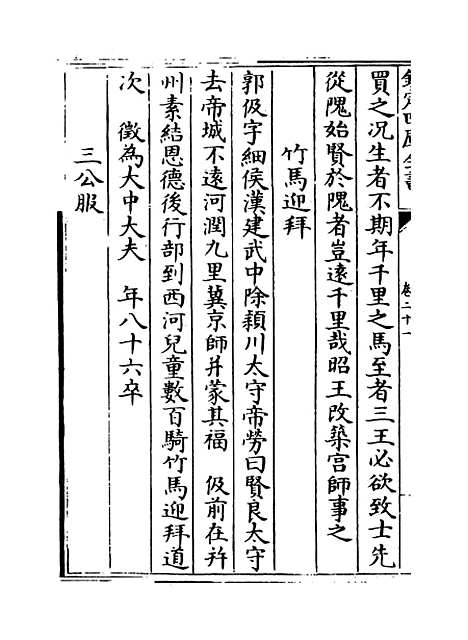 欽定四庫全書
卷二十一
買之况生者不期年千里之馬至者三王必欲致士先
從隗始賢於隗者豈逺千里哉昭王改築宫師事之
竹馬迎拜
郭伋字細侯漢建武中除頴川太守帝勞曰賢良太守
去帝城不逺河潤九里冀京師并蒙其福　伋前在并
州素結恩德後行部到西河兒童數百騎竹馬迎拜道
次　徵為大中大夫　年八十六卒
三公服